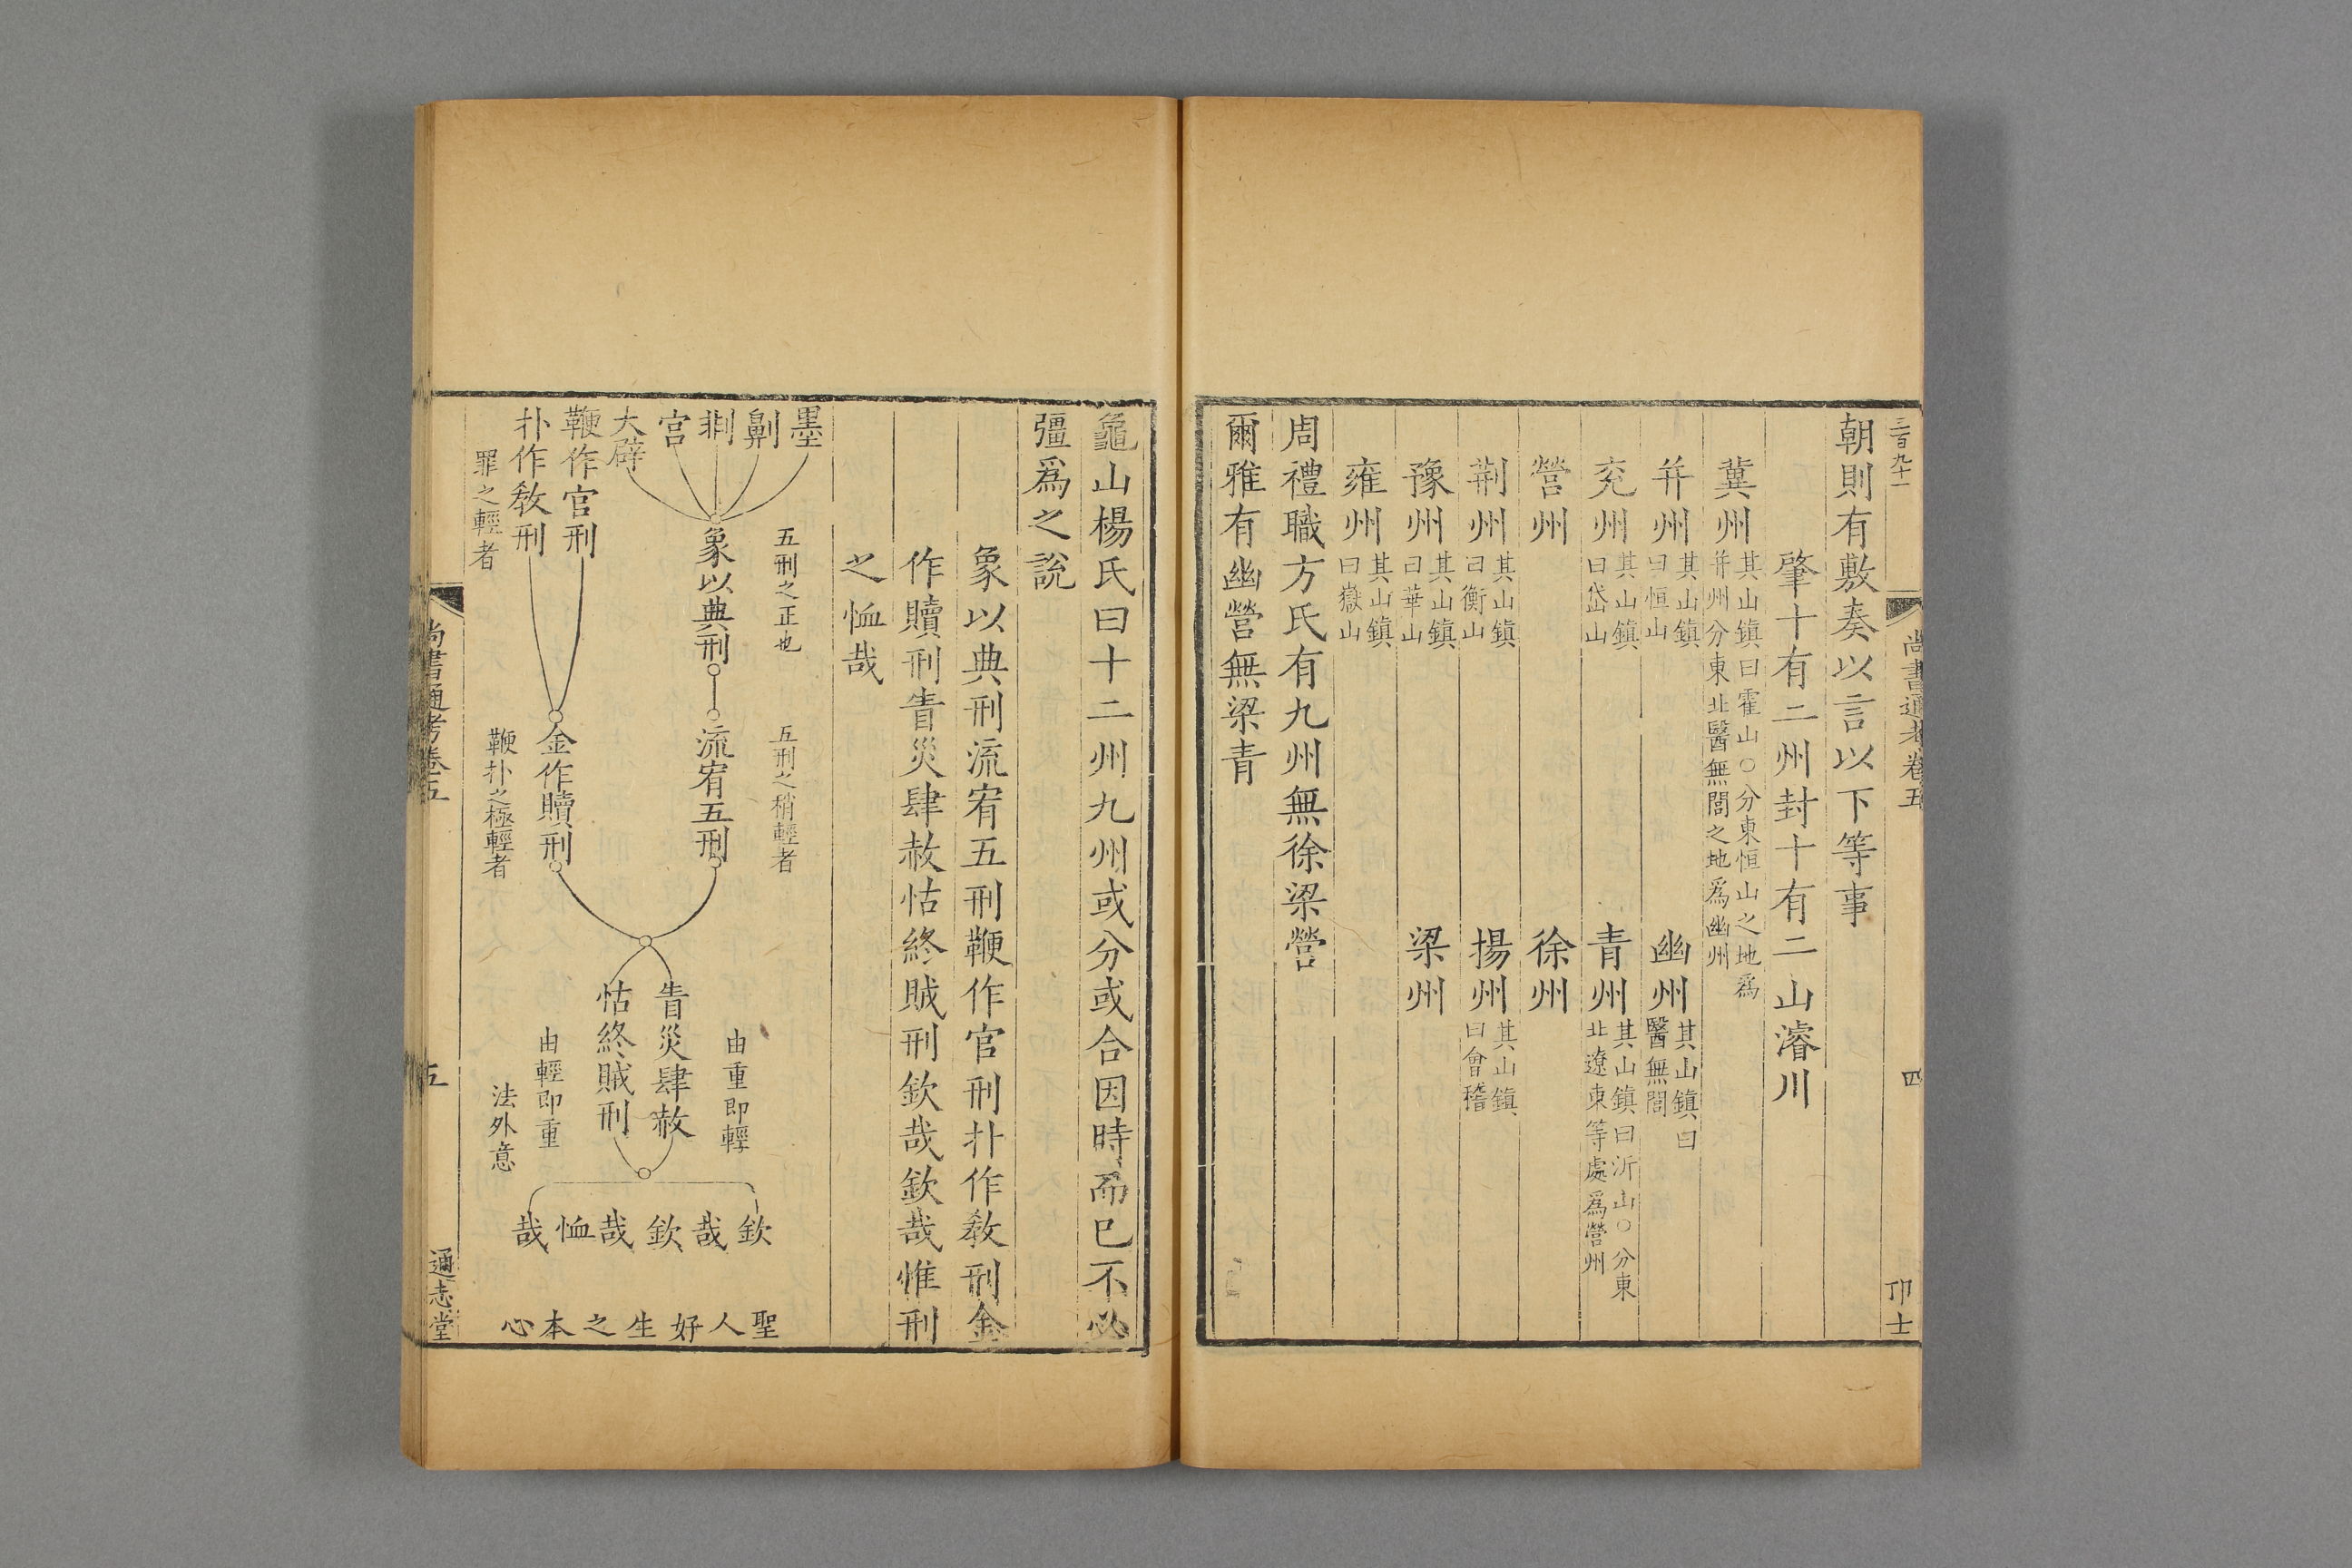 三百九十一
尚書通考卷五
四
卬士
朝則有敷奏以言以下等事
肇十有二州封十有二山濬川
冀州 其山鎮曰霍山○分東恒山之地爲
幷州分東北醫無閭之地爲幽州
幷州 其山鎮
曰恒山
幽州 其山鎮曰
醫無閭
兖州 其山鎮
曰岱山
青州 其山鎮曰沂山○分東
北遼東等處爲營州
營州
徐州
荆州 其山鎮
曰衡山
揚州 其山鎮
曰會稽
豫州 其山鎮
曰華山
梁州
雍州 其山鎮
曰嶽山
周禮職方氏有九州無徐梁營
爾雅有幽營無梁青
龜山楊氏曰十二州九州或分或合因時而已不必
彊爲之說
象以典刑流宥五刑鞭作官刑扑作教刑金
作贖刑眚災肆赦怙終賊刑欽哉欽哉惟刑
之恤哉
墨
劓
剕
宮
大辟
鞭作官刑
扑作教刑
罪之輕者
五刑之正也
象以典刑
五刑之稍輕者
流宥五刑
金作贖刑
鞭扑之極輕者
由重即輕
眚災肆赦
怙終賊刑
由輕即重
法外意
欽哉欽哉恤哉
聖人好生之本心
尚書通考卷五
五
通志堂